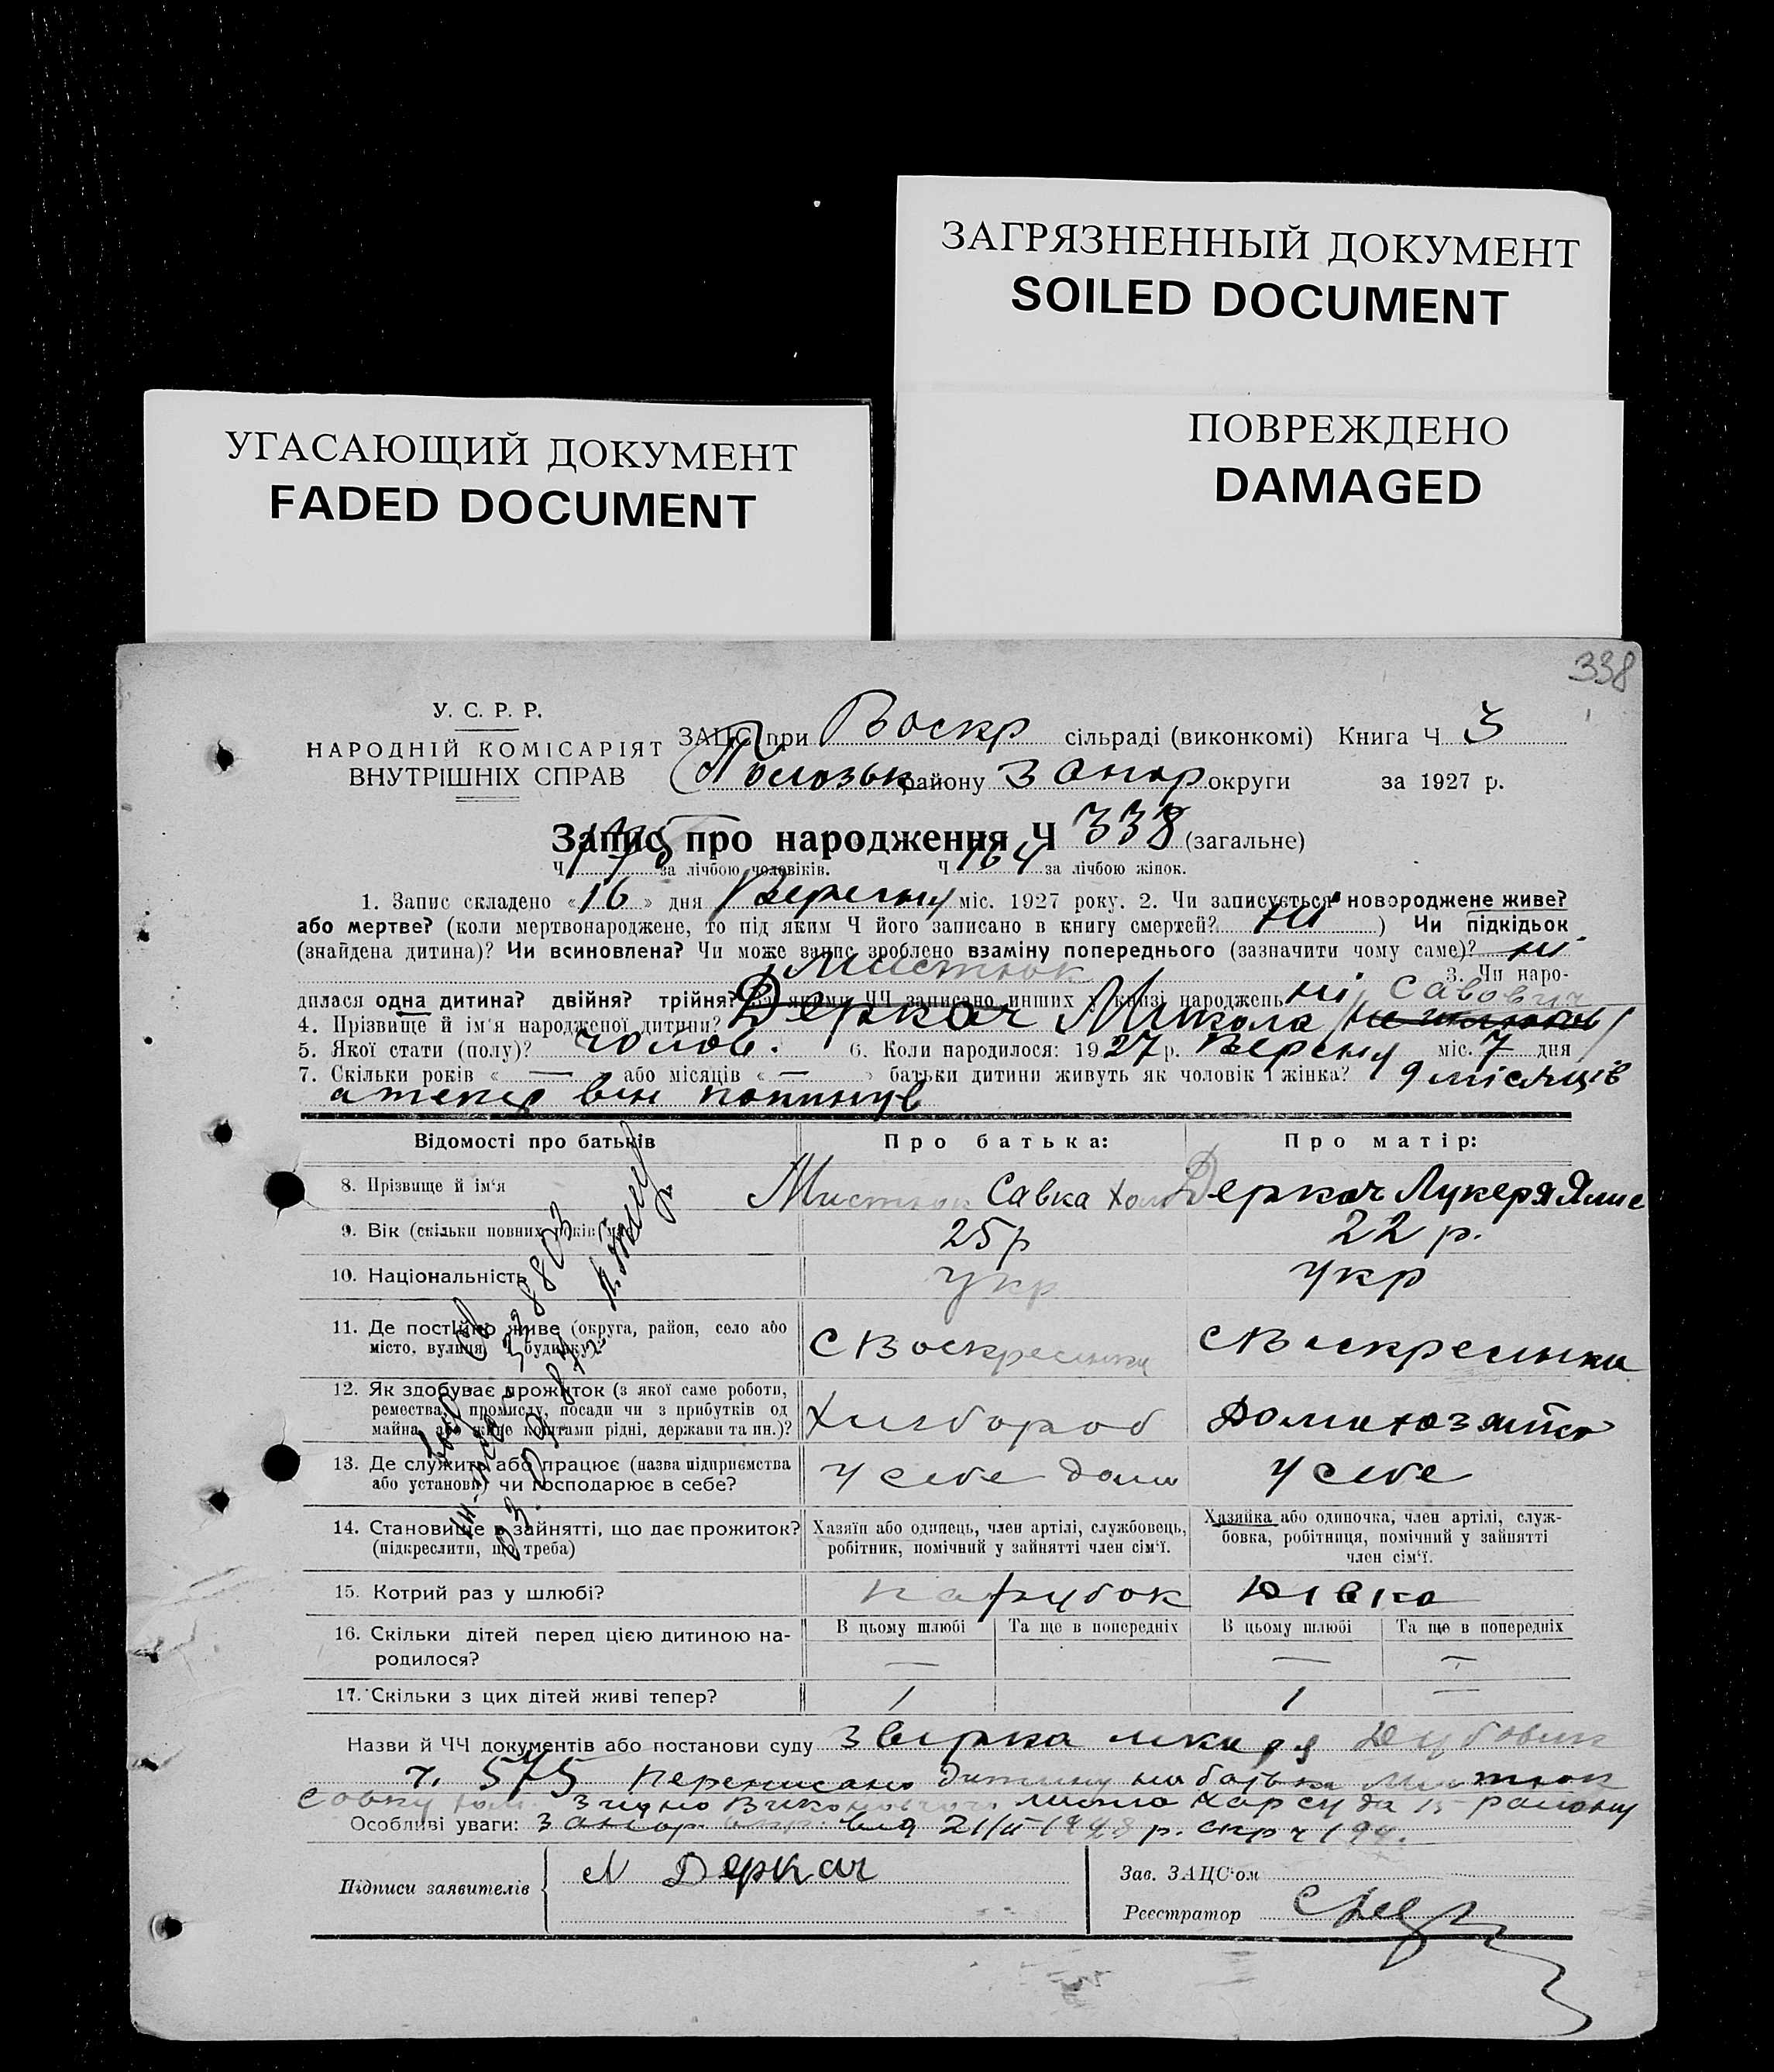 ЗАГРЯЗНЕННЫЙ ДОКУМЕНТ
SOILED DOCUMENT
ПОВРЕЖДЕНО
DAMAGED
УГАСАЮЩИЙ ДОКУМЕНТ
FADED DOCUMENT
338
У. С. Р. Р.
НАРОДНІЙ КОМІСАРІЯТ
ВНУТРІШНІХ СПРАВ
ЗАЦС при Воскр сільраді (виконкомі) Книга Ч 3
району Запор округи за 1927 р.
Запис про народження Ч 338 (загальне)
Ч за лічбою чоловіків. Ч 164 за лічбою жінок.
1. Запис складено «16» дня Вересня міс. 1927 року. 2. Чи записується новороджене живе?
або мертве? (коли мертвонароджене, то під яким Ч його записано в книгу смертей? ні ) Чи підкідьок
(знайдена дитина)? Чи всиновлена? Чи може запис зроблено взаміну попереднього (зазначити чому саме)? ні
Мистюк 3. Чи наро-
дилася одна дитина? двійня? трійня? За якими ЧЧ записано инших у книзі народжень ні Савович
4. Прізвище й ім'я народженої дитини? Деркач Микола
5. Якої стати (полу)? чолов. 6. Коли народилося: 1927 р. Вересня міс. 7 дня
7. Скільки років « — » або місяців « — » батьки дитини живуть як чоловік і жінка? 9 місяців
а тепер він покинув
Відомості про батьків Про батька: Про матір:
8. Прізвище й ім'я Мистюк Савка Деркач Лукеря
9. Вік (скільки повних років має) 25 р 22 р.
10. Національність укр укр
11. Де постійно живе (округа, район, село або
місто, вулиця, Ч будинку)? С Воскресенка С Воскресенка
12. Як здобуває прожиток (з якої саме роботи,
ремества, промислу, посади чи з прибутків од
майна, або живе коштами рідні, держави та ин.)? Хлібороб
13. Де служить або працює (назва підприємства
або установи) чи господарює в себе? у себе дома у себе
14. Становище в зайнятті, що дає прожиток?
(підкреслити, що треба)
Хазяїн або одинець, член артілі, службовець,
робітник, помічний у зайнятті член сім'ї.
Хазяйка або одиночка, член артілі, служ-
бовка, робітниця, помічний у зайнятті
член сім'ї.
15. Котрий раз у шлюбі? парубок дівка
16. Скільки дітей перед цією дитиною на-
родилося?
В цьому шлюбі Та ще в попередніх В цьому шлюбі Та ще в попередніх
— — —
17. Скільки з цих дітей живі тепер? 1 1 —
Назви й ЧЧ документів або постанови суду лікаря
ч. 575 Переписано дитину на батька Мистюк
Савку згідно Виконавчого листа суда 15 району
Особливі уваги: Запор. від 21/II 1928 р.
Підписи заявителів Л Деркач
Зав. ЗАЦС'ом
Реєстратор